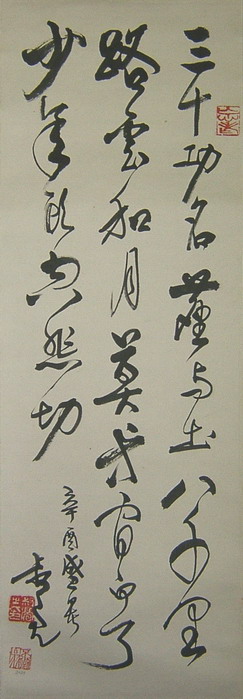 三十功名塵与土八千里
路雲和月莫等閒白了
少年頭空悲切
辛酉盛